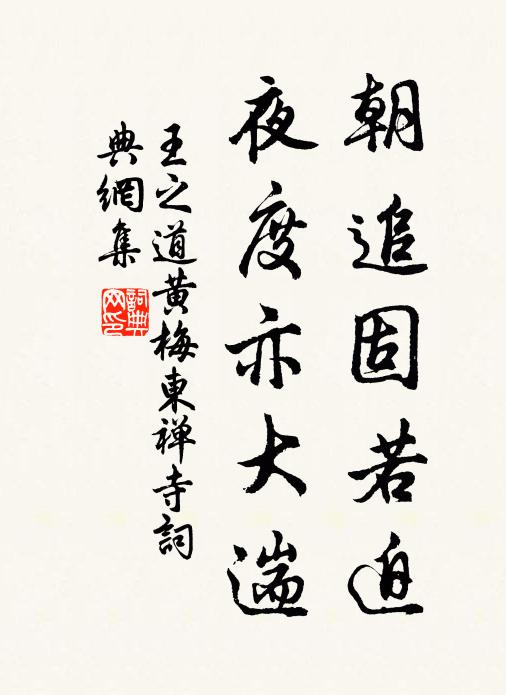 朝追固若迫
夜度亦大遄
王之道黄梅東禅寺詞
典網集
詞典
网印